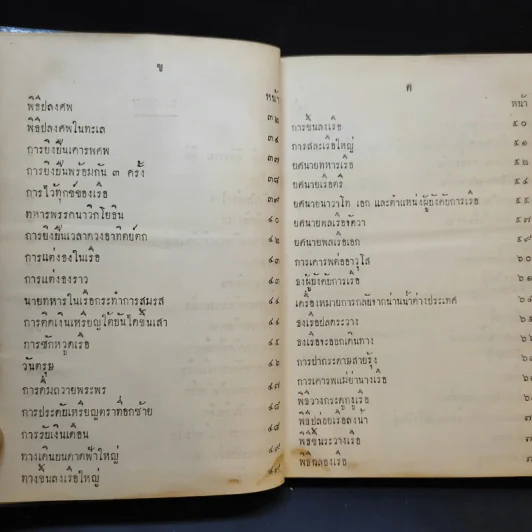 ข
หน้า
พิธีปลงศพ ๓๒
พิธีปลงศพในทะเล ๓๔
การยิงปืนเคารพศพ ๓๗
การยิงปืนพร้อมกัน ๓ ครั้ง ๓๘
การไว้ทุกข์ของเรือ ๓๙
ทหารพรรคนาวิกโยธิน ๔๐
การยิงปืนเวลาดวงอาทิตย์ตก ๔๒
การแต่งธงในเรือ ๔๓
การแต่งธงราว ๔๓
นายทหารในเรือกระทำการสมรส ๔๔
การติดเงินเหรียญใต้ขันไดขึ้นเสา ๔๔
การชักหวูดเรือ ๔๕
วันตรุษ
การดื่มถวายพระพร ๔๗
การประดับเหรียญตราที่อกซ้าย ๔๘
การรับเงินเดือน ๔๘
ทางเดินบนดาดฟ้าใหญ่ ๔๙
ทางขึ้นลงเรือใหญ่ ๔๙
ค
หน้า
การขึ้นลงเรือ ๕๐
การสละเรือใหญ่ ๕๑
ยศนายทหารเรือ ๕๒
ยศนายเรือตรี
ยศนายนาวาโท เอก และตำแหน่งผู้บังคับการเรือ ๕๕
ยศนายพลเรือจัตวา
ยศนายพลเรือเอก
การเคารพต่ออาวุโส ๖๐
ธงผู้บังคับการเรือ ๖๑
เครื่องหมายการกลับจากน่านน้ำต่างประเทศ
ธงเรือปลดระวาง
ธงเรือจะออกเดินทาง
การปากระดาษสายรุ้ง
การเคารพแม่ย่านางเรือ
พิธีวางกระดูกงูเรือ
พิธีปล่อยเรือลงน้ำ
พิธีขึ้นระวางเรือ
พิธีฉลองเรือ